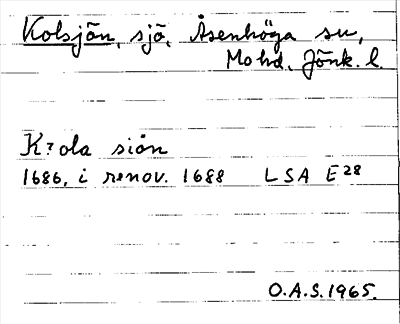 Kolsjön, sjö, Åsenhöga sn,
Mo hd. Jönk. l.
K?ola siön
1686, i renov. 1688 LSA E28
O.A.S. 1965.